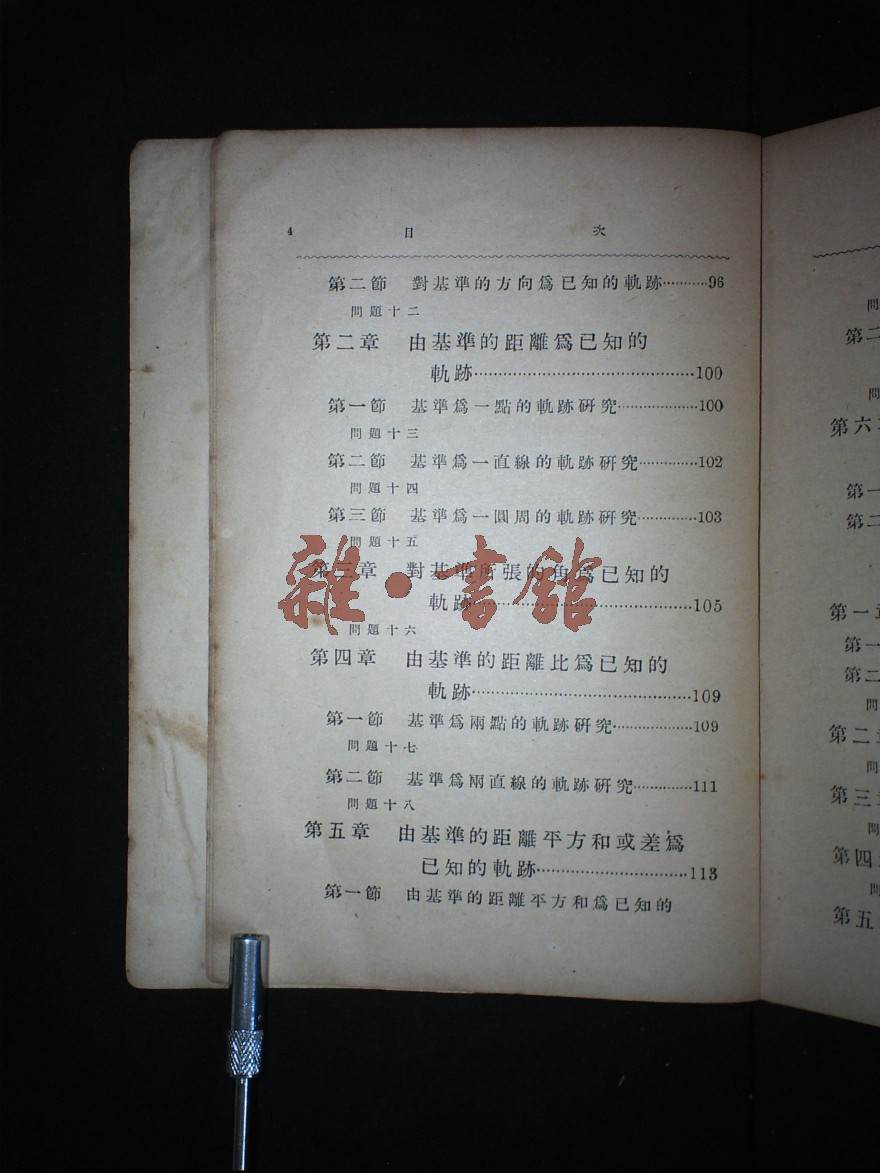 4 目 次
第二節 對基準的方向爲已知的軌跡…………96
問題十二
第二章 由基準的距離爲已知的
軌跡……………………………………100
第一節 基準爲一點的軌跡研究……………100
問題十三
第二節 基準爲一直線的軌跡研究…………102
問題十四
第三節 基準爲一圓周的軌跡研究…………103
問題十五
第三章 對基準所張的角爲已知的
軌跡……………………………………105
雜·書館
問題十六
第四章 由基準的距離比爲已知的
軌跡……………………………………109
第一節 基準爲兩點的軌跡研究……………109
問題十七
第二節 基準爲兩直線的軌跡研究…………111
問題十八
第五章 由基準的距離平方和或差爲
已知的軌跡…………………………113
第一節 由基準的距離平方和爲已知的
問
第二
問
第六
第一
第二
第一章
第一
第二
問
第二章
問
第三
問
第四
問
第五